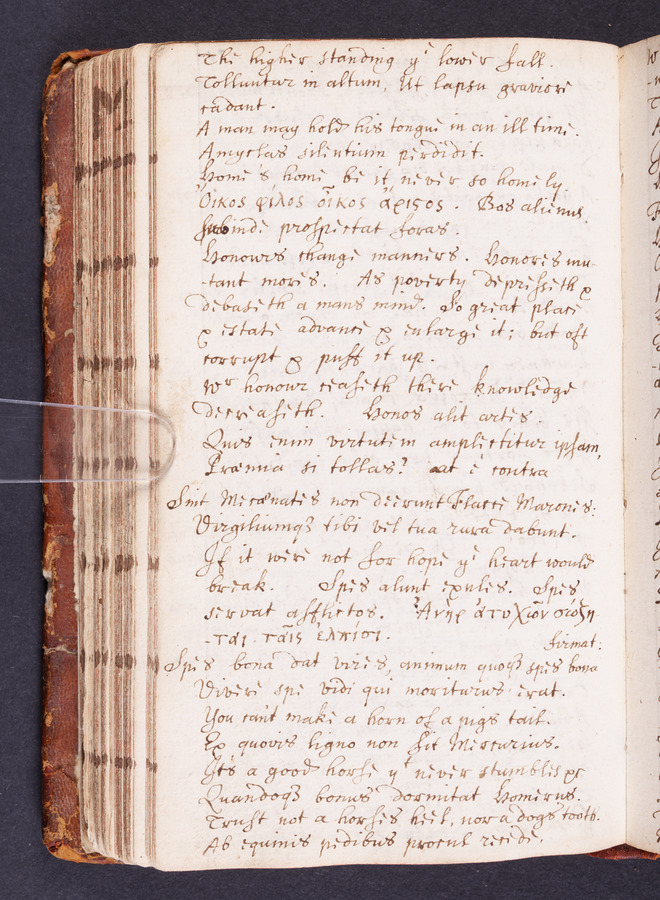 The higher standing yᵉ lower fall.
Tolluntur in altum, Ut lapsu graviore
cadant.
A man may hold his tongue in an ill time.
Amyclas silentium perdidit.
Home's home be it never so homely.
Οικος φιλος οἶκος ἄριςος. Bos alienus
subinde prospectat foras.
Honours change manners. Honores mu-
-tant mores. As poverty depresseth &
debaseth a mans mind. So great place
& estate advance & enlarge it; but oft
corrupt & puff it up.
Wʳ honour ceaseth there knowledge
decreaseth. Honos alit artes.
Quis enim virtutem amplectitur ipsam,
Præmia si tollas? at è contra
Sint Mecænates non deerunt Flacce Marones:
Virgiliumqꝫ tibi vel tua rura dabunt.
If it were not for hope yᵉ heart would
break. Spes alunt exules. Spes
servat afflictos. Ἀνὴρ ἀτυχῶν σωζη-
-ται ταῖς ἐλπίσι.
firmat:
Spes bona dat vires, animum quoqꝫ spes bona
Vivere spe vidi qui moriturus erat.
You cant make a horn of a pigs tail.
Ex quovis ligno non fit Mercurius.
It's a good horse yᵗ never stumbles &c
Quandoqꝫ bonus dormitat Homerus.
Trust not a horses heel, nor a dogs tooth.
Ab equinis pedibus procul recede.